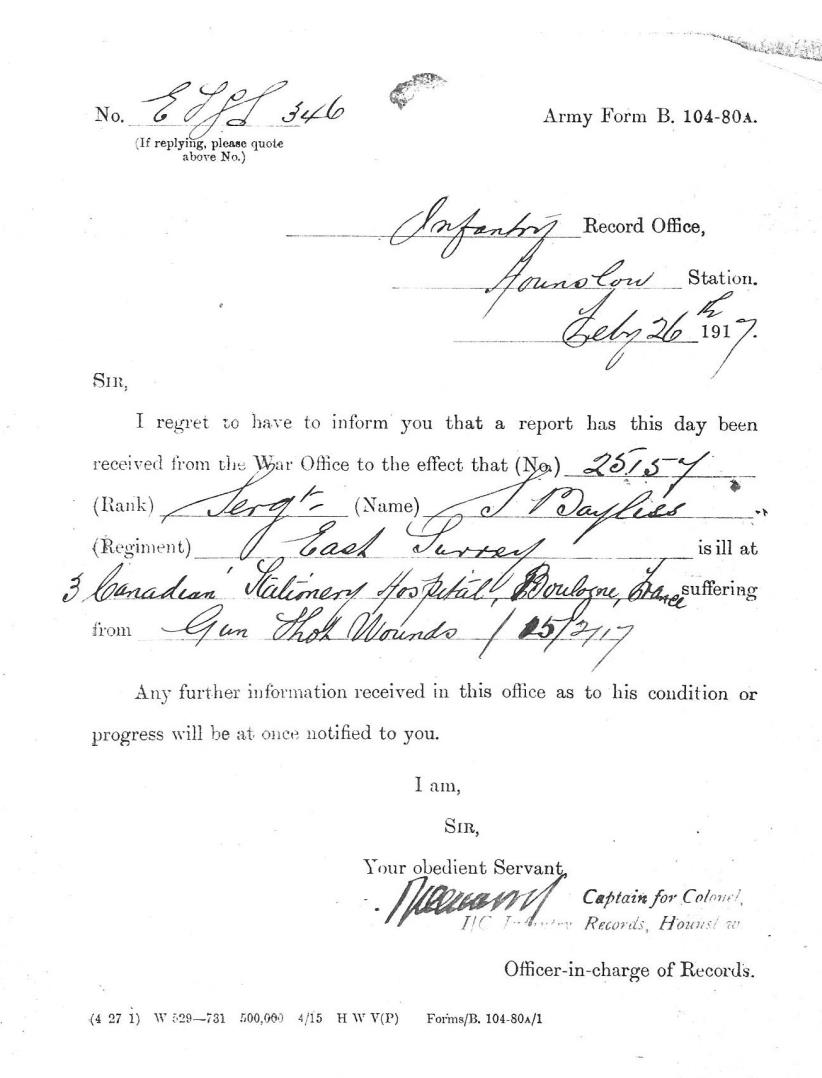 No. E 346
Army Form B. 104-80A.
(If replying, please quote
above No.)
Infantry Record Office,
Hounslow Station.
Feby 26th 1917.
SIR,
I regret to have to inform you that a report has this day been
received from the War Office to the effect that (No.) 25157
(Rank) Sergt (Name) Bayliss
(Regiment) East Surrey is ill at
3 Canadian Stationery Hospital, Boulogne, France suffering
from Gun Shot Wounds /2/17
Any further information received in this office as to his condition or
progress will be at once notified to you.
I am,
SIR,
Your obedient Servant,
Captain for Colonel,
I/C Infantry Records, Hounslow
Officer-in-charge of Records.
(4 27 1) W 529—731 500,000 4/15 H W V(P) Forms/B. 104-80A/1